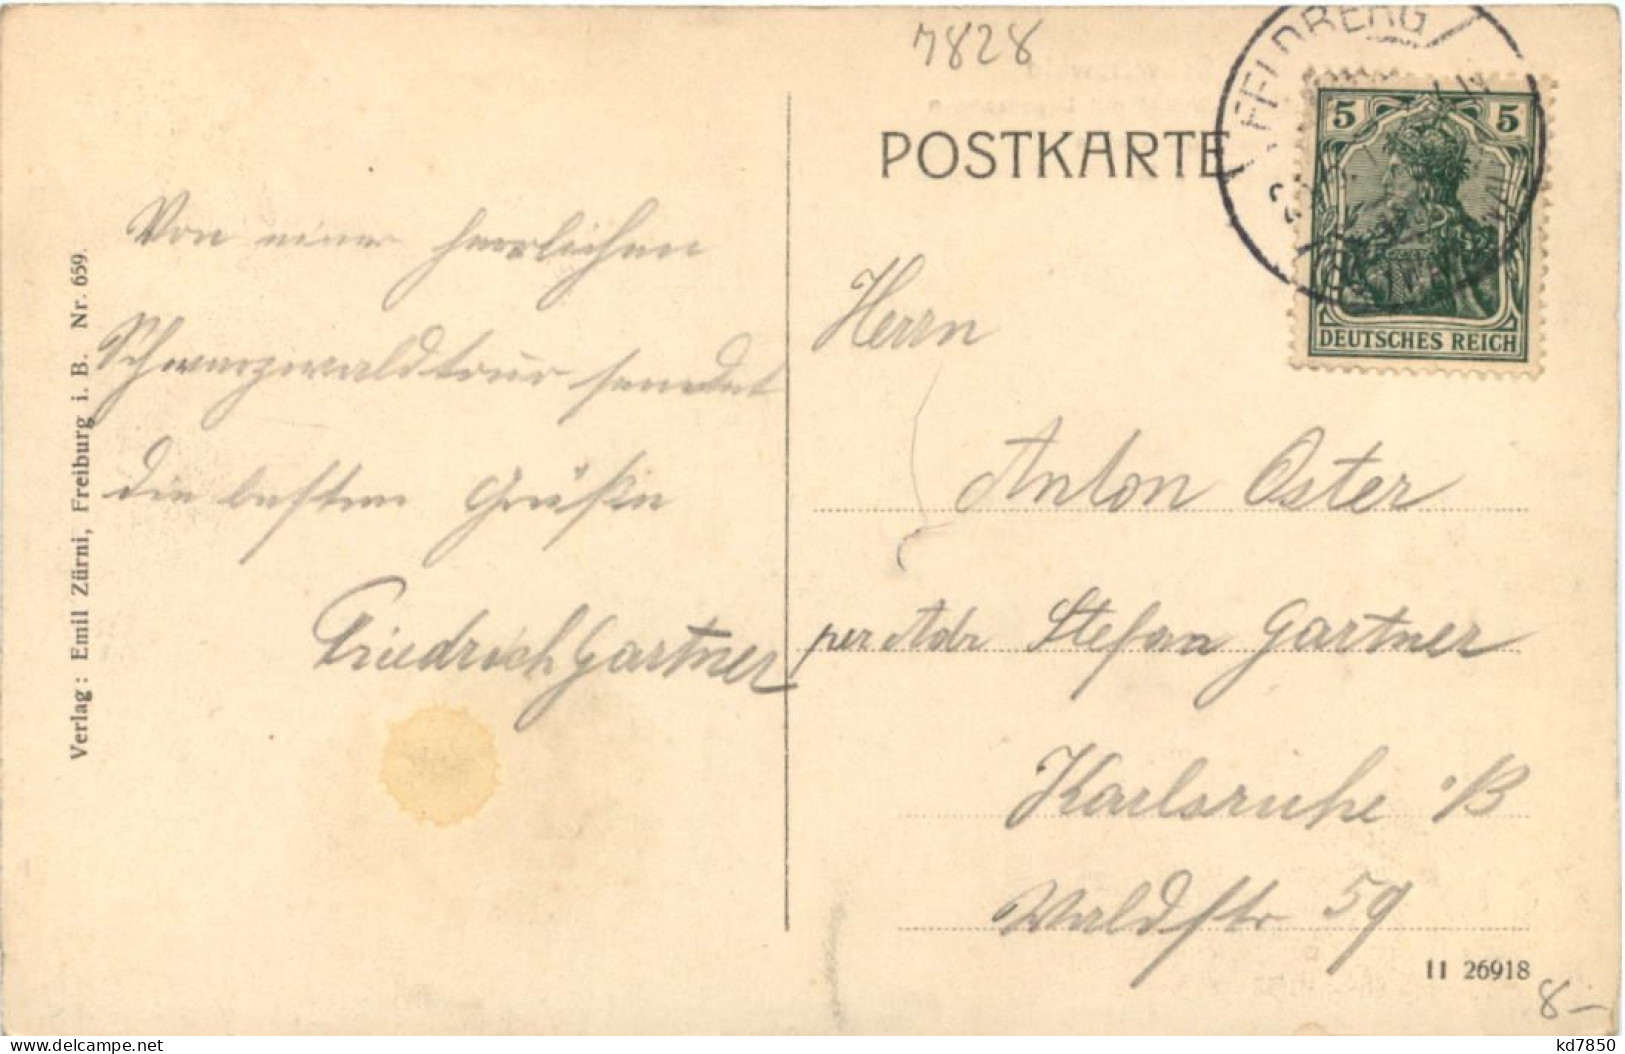 7828
POSTKARTE
FELDBERG
5 5
DEUTSCHES REICH
Von einer herrlichen
Schwarzwaldtour sendet
die besten Grüße
Friedrich Gartner
Herrn
Anton Oster
per Adr Stefan Gartner
Karlsruhe i/B
Waldstr 59
Verlag: Emil Zürni, Freiburg i. B. Nr. 659.
II 26918
8-
kd7850